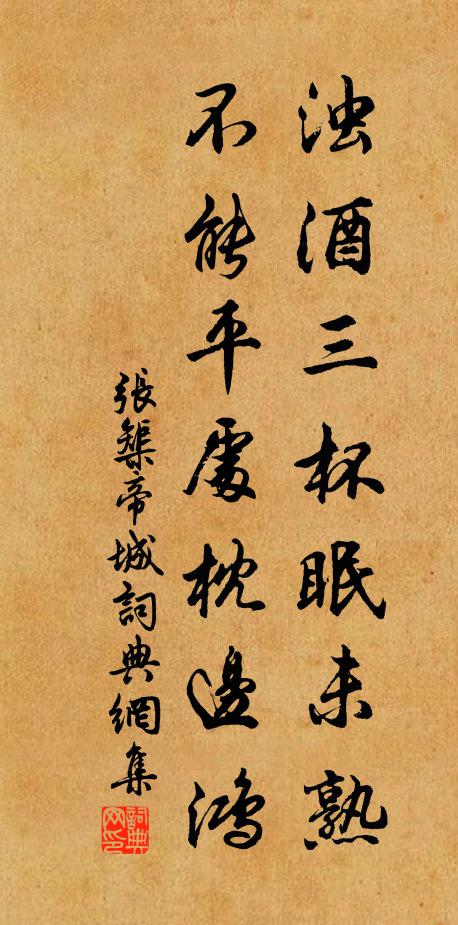 浊酒三杯眠未熟
不能平處枕邊鴻
張榘帝城詞典網集
詞典网印